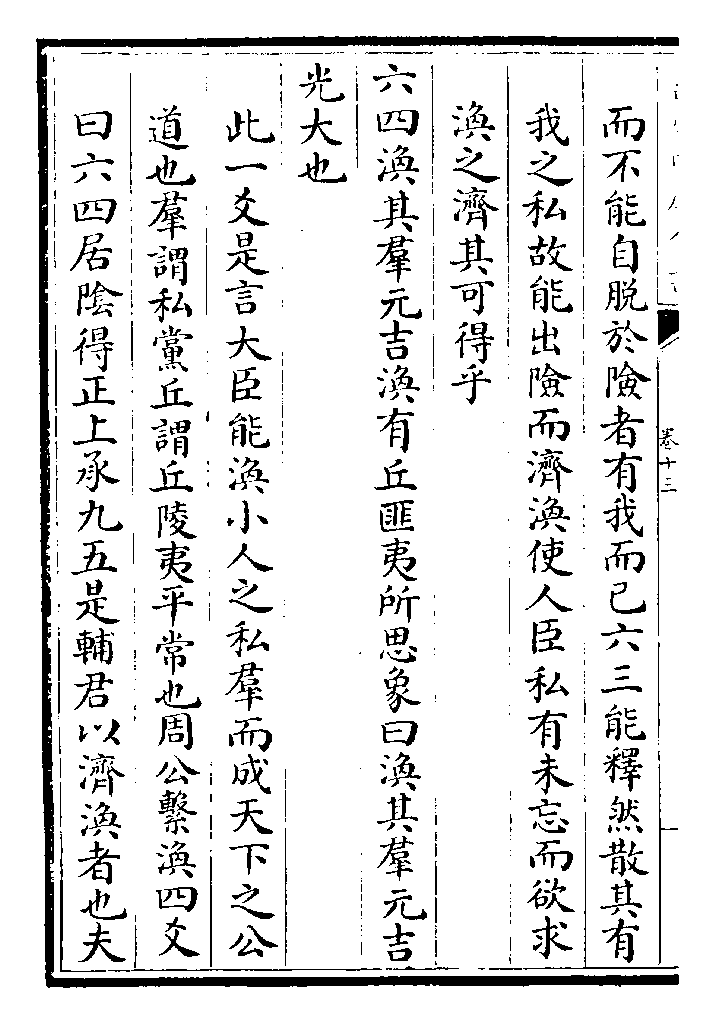 而不能自脱於險者有我而已六三能釋然散其有
我之私故能出險而濟渙使人臣私有未忘而欲求
渙之濟其可得乎
六四渙其羣元吉渙有丘匪夷所思象曰渙其羣元吉
光大也
此一爻是言大臣能渙小人之私羣而成天下之公
道也羣謂私黨丘謂丘陵夷平常也周公繫渙四爻
曰六四居陰得正上承九五是輔君以濟渙者也夫
卷十三